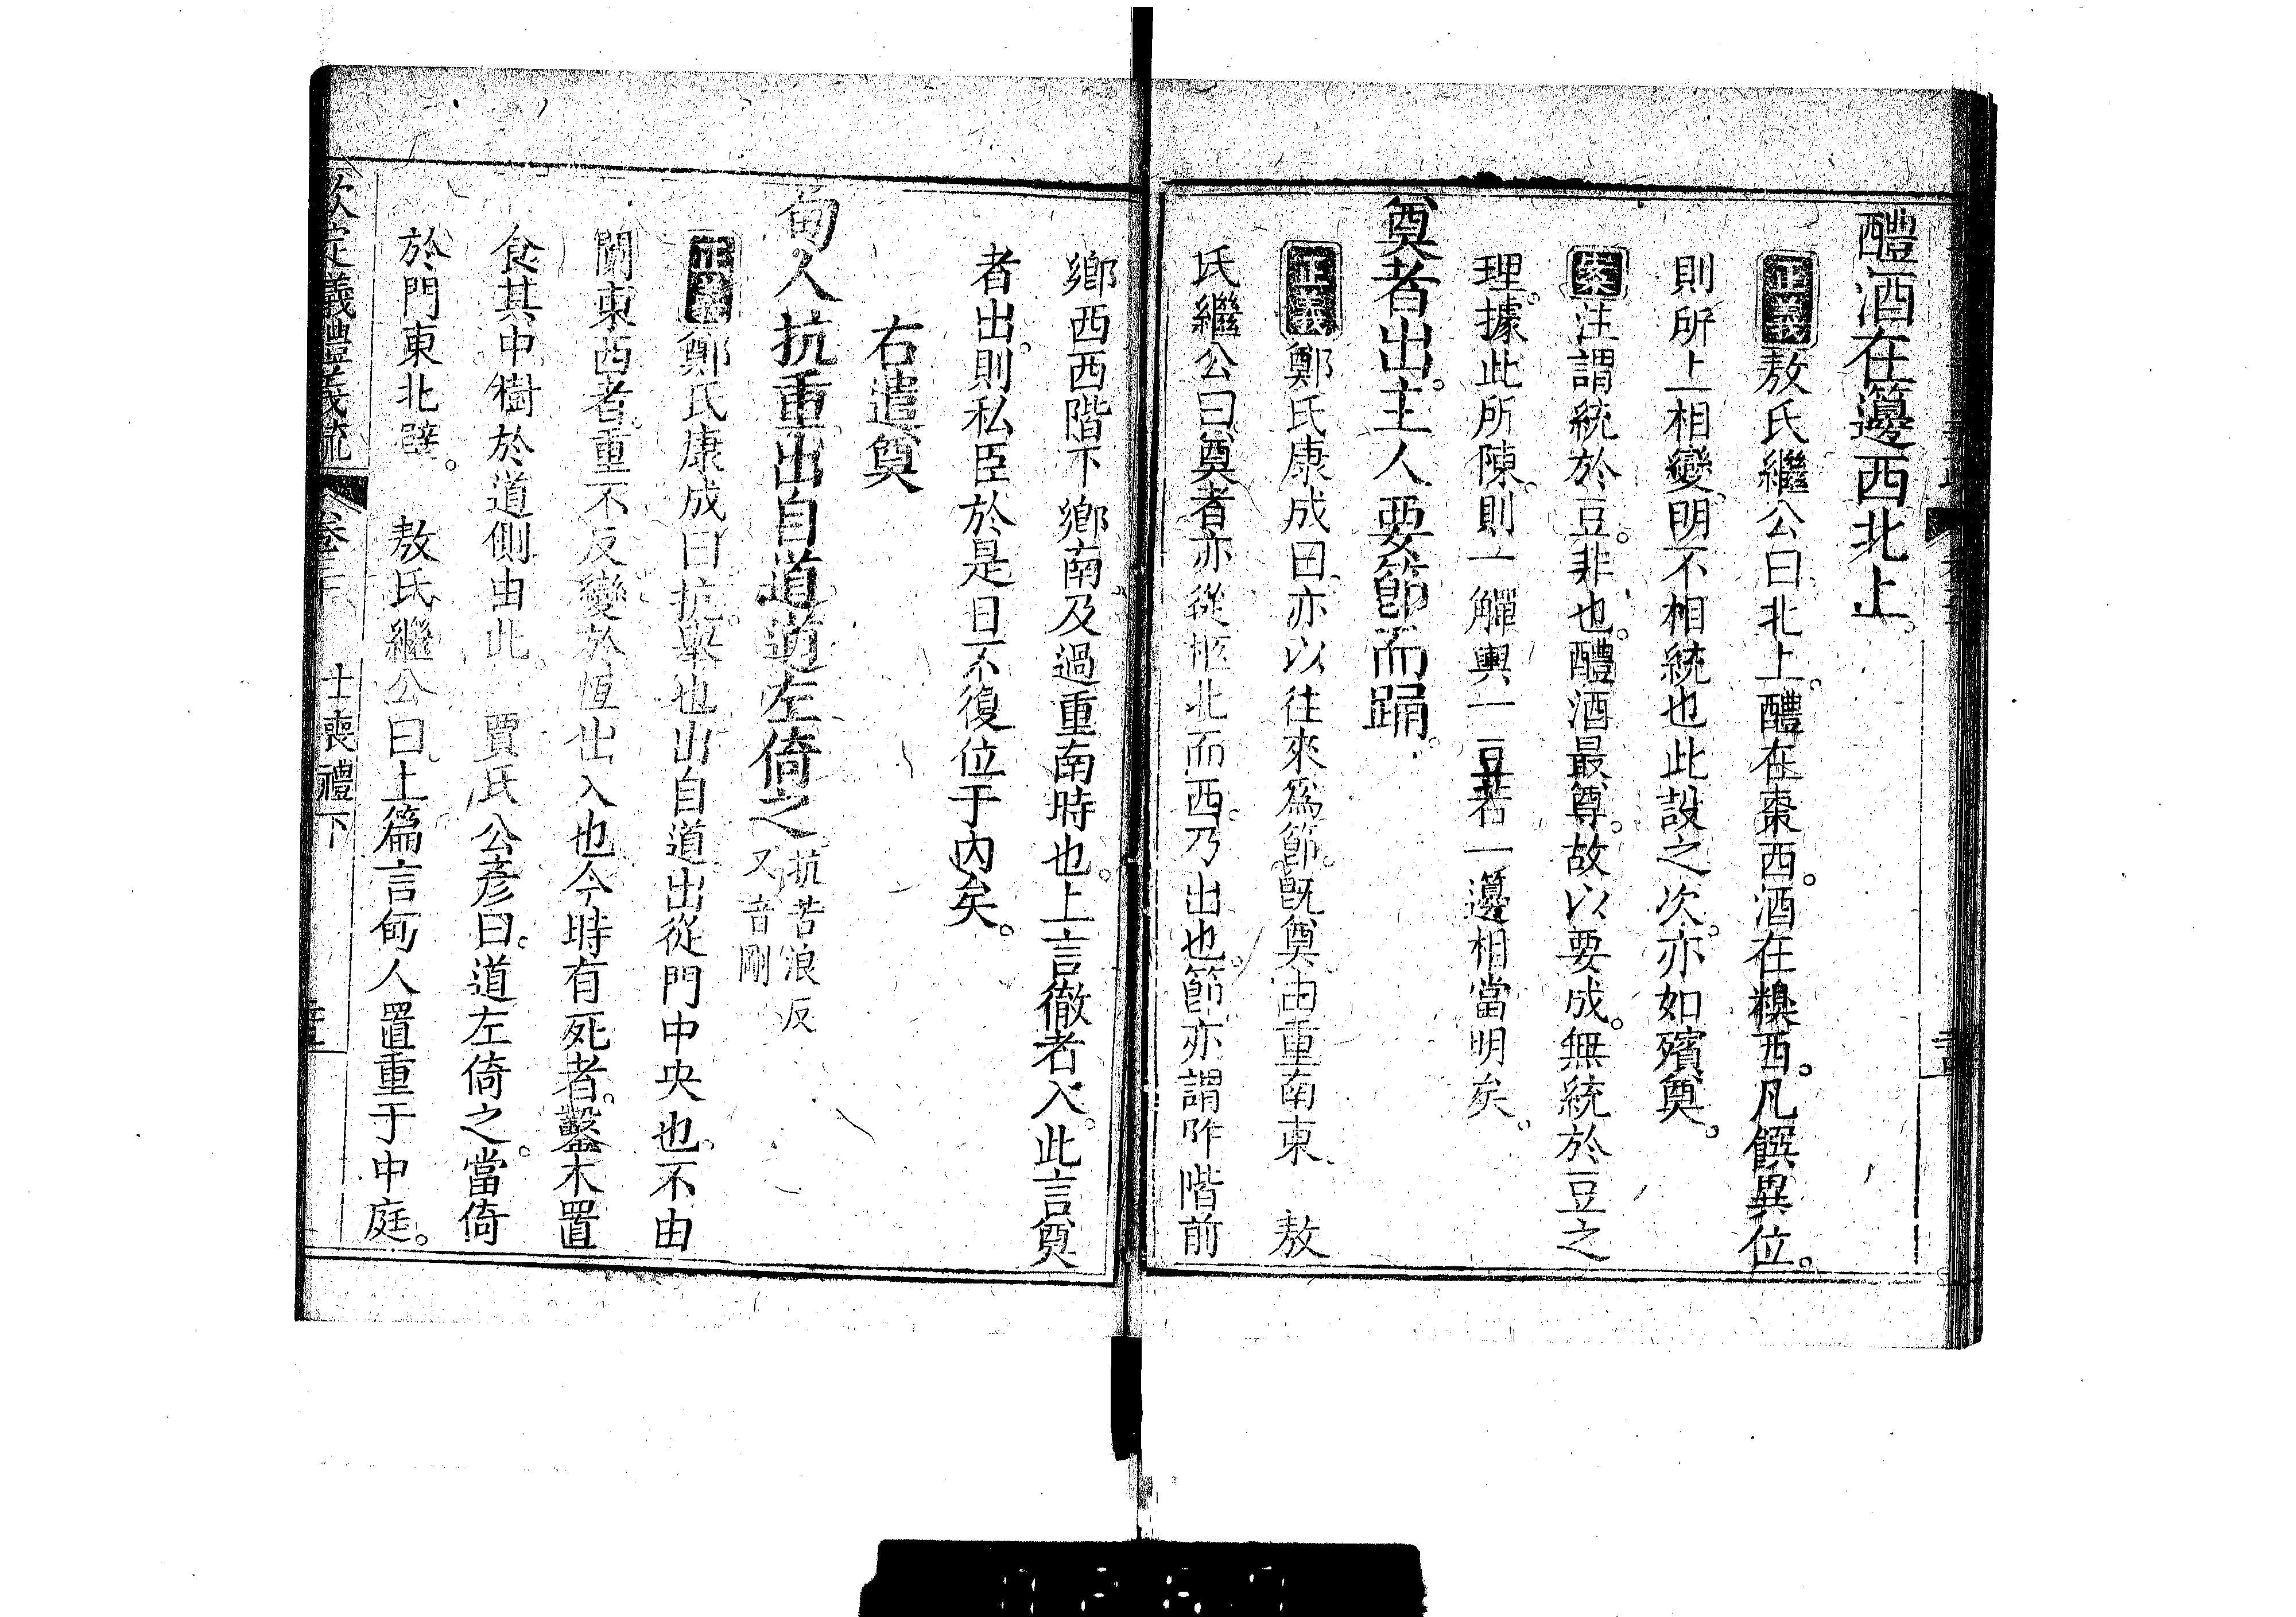 醴酒在籩西北上。
正義敖氏繼公曰北上。醴在棗西。酒在糗西。凡饌異位。
則所上相變。明不相統也此設之次。亦如殯奠。
案注謂統於豆。非也。醴酒最尊。故以要成。無統於豆之
理。據此所陳。則一觶與一豆若一籩相當明矣。
奠者出。主人要節而踊。
正義鄭氏康成曰亦以往來爲節。旣奠。由重南東 敖
氏繼公曰奠者亦從柩北而西。乃出也。節亦謂阼階前
鄉西西階下鄉南。及過重南時也。上言徹者入。此言奠
者出。則私臣於是日不復位于內矣。
右遣奠
甸人抗重出自道道左倚之。抗苦浪反又音剛
正義鄭氏康成曰抗。舉也出自道。出從門中央也。不由
闑東西者。重不反變於恆出入也今時有死者。鑿木置
食其中樹於道側由此。 賈氏公彥曰。道左倚之。當倚
於門東北壁。 敖氏繼公曰。上篇言甸人置重于中庭。
欽定義禮義疏 卷三 士喪禮下